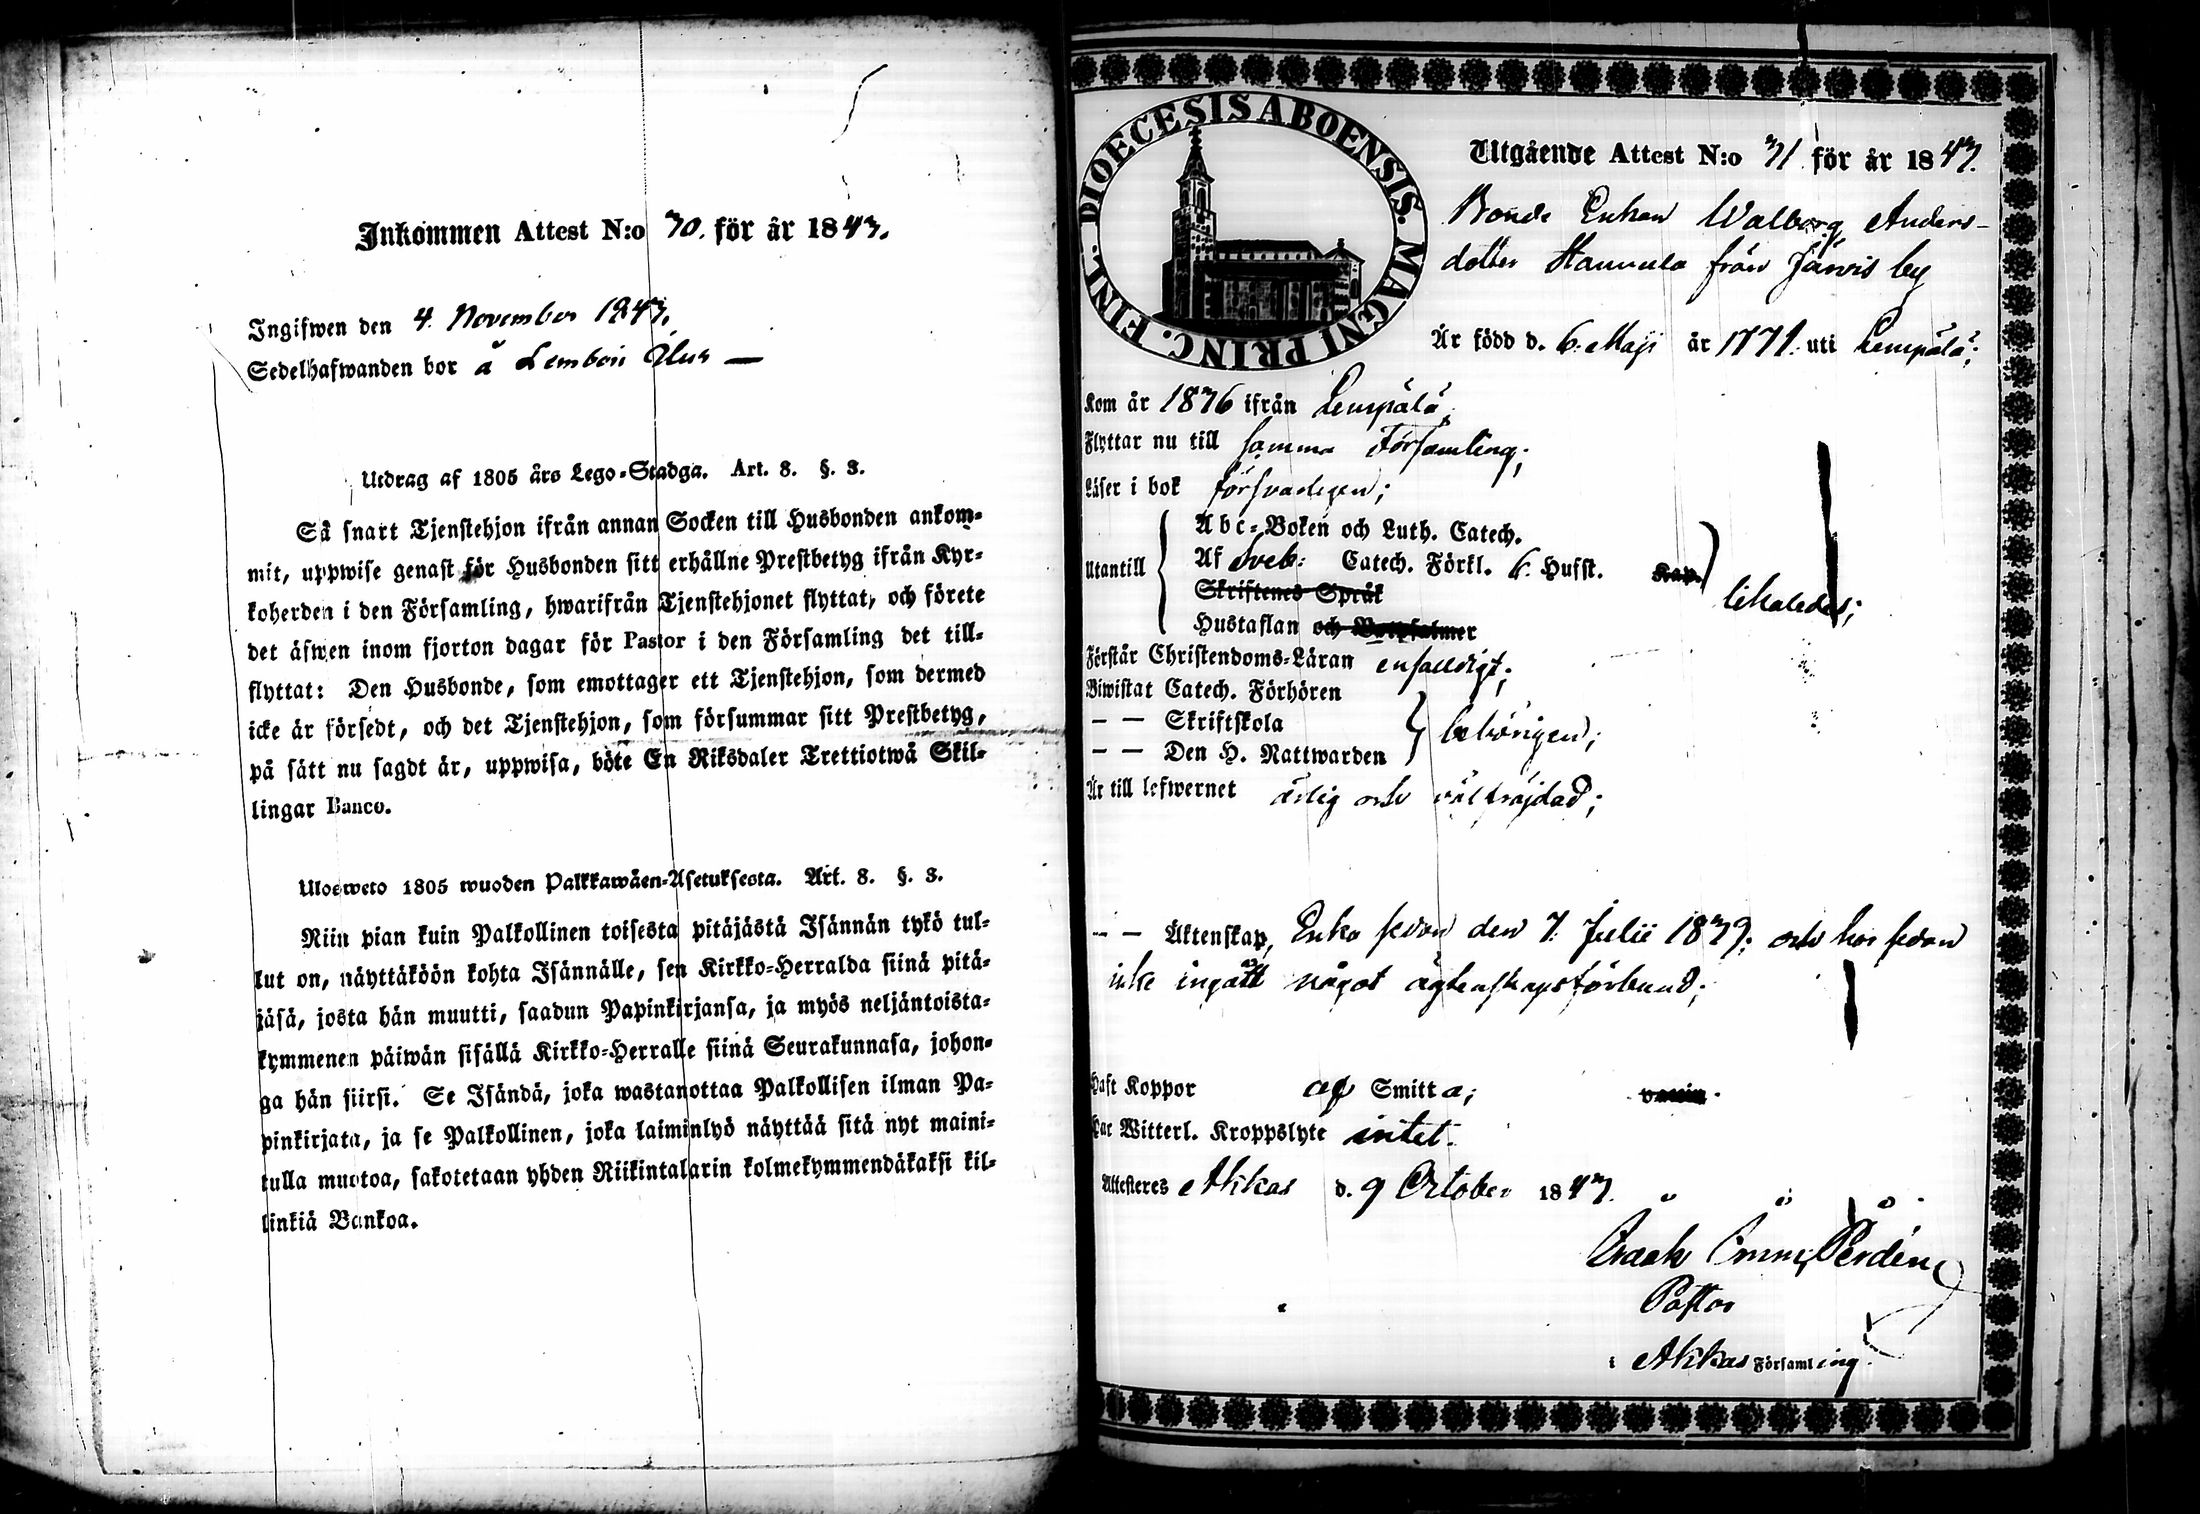 Inkommen Attest N:o 30. för år 1843.
Ingifwen den 4. November 1843.
Sedelhafwanden bor å Lembois Ahus —
Utdrag af 1805 års Lego-Stadga. Art. 8. §. 3.
Så snart Tjenstehjon ifrån annan Socken till Husbonden ankom-
mit, uppwise genast för Husbonden sitt erhållne Prestbetyg ifrån Kyr-
koherden i den Församling, hwarifrån Tjenstehjonet flyttat, och förete
det äfwen inom fjorton dagar för Pastor i den Församling det till-
flyttat: Den Husbonde, som emottager ett Tjenstehjon, som dermed
icke är försedt, och det Tjenstehjon, som försummar sitt Prestbetyg,
på sätt nu sagdt är, uppwisa, böte En Riksdaler Trettiotwå Skil-
lingar Banco.
Ulosweto 1805 wuoden Palkkawäen-Asetuksesta. Art. 8. §. 3.
Niin pian kuin Palkollinen toisesta pitäjästä Isännän tykö tul-
lut on, näyttäköön kohta Isännälle, sen Kirkko-Herralda siinä pitä-
jäsä, josta hän muutti, saadun Papinkirjansa, ja myös neljäntoista-
kymmenen päiwän sisällä Kirkko-Herralle siinä Seurakunnasa, johon-
ga hän siirsi. Se Isändä, joka wastanottaa Palkollisen ilman Pa-
pinkirjata, ja se Palkollinen, joka laiminlyö näyttää sitä nyt maini-
tulla muotoa, sakotetaan yhden Riikintalarin kolmekymmendäkaksi kil-
linkiä Bankoa.
DIOECESIS ABOENSIS. MAGNI PRINC. FINL.
Utgående Attest N:o 31 för år 1843.
Bonde Enkan Walborg Anders-
dotter Hannula från Järvis by
Är född d. 6. Maji år 1771. uti Lempälä;
Kom år 1836 ifrån Lempälä;
Flyttar nu till samma Församling;
Läser i bok försvarligen;
Utantill
Abc-Boken och Luth. Catech.
Af Sveb: Catech. Förkl. 6. Hufst. Kap.
Skriftenes Språk
Hustaflan och Botpsalmer
likaledes;
Förstår Christendoms-Läran enfaldigt;
Biwistat Catech. Förhören
— — Skriftskola
— — Den H. Nattwarden
behörigen;
Är till lefwernet ärlig och välfräjdad;
— — Äktenskap, Enka sedan den 7. Julii 1839; och har sedan
icke ingått något ägtenskapsförbund;
Haft Koppor af Smitta; vaccin.
Har Witterl. Kroppslyte intet.
Attesteres Akkas d. 9 October 1843.
Pastor
i Akkas Församling.